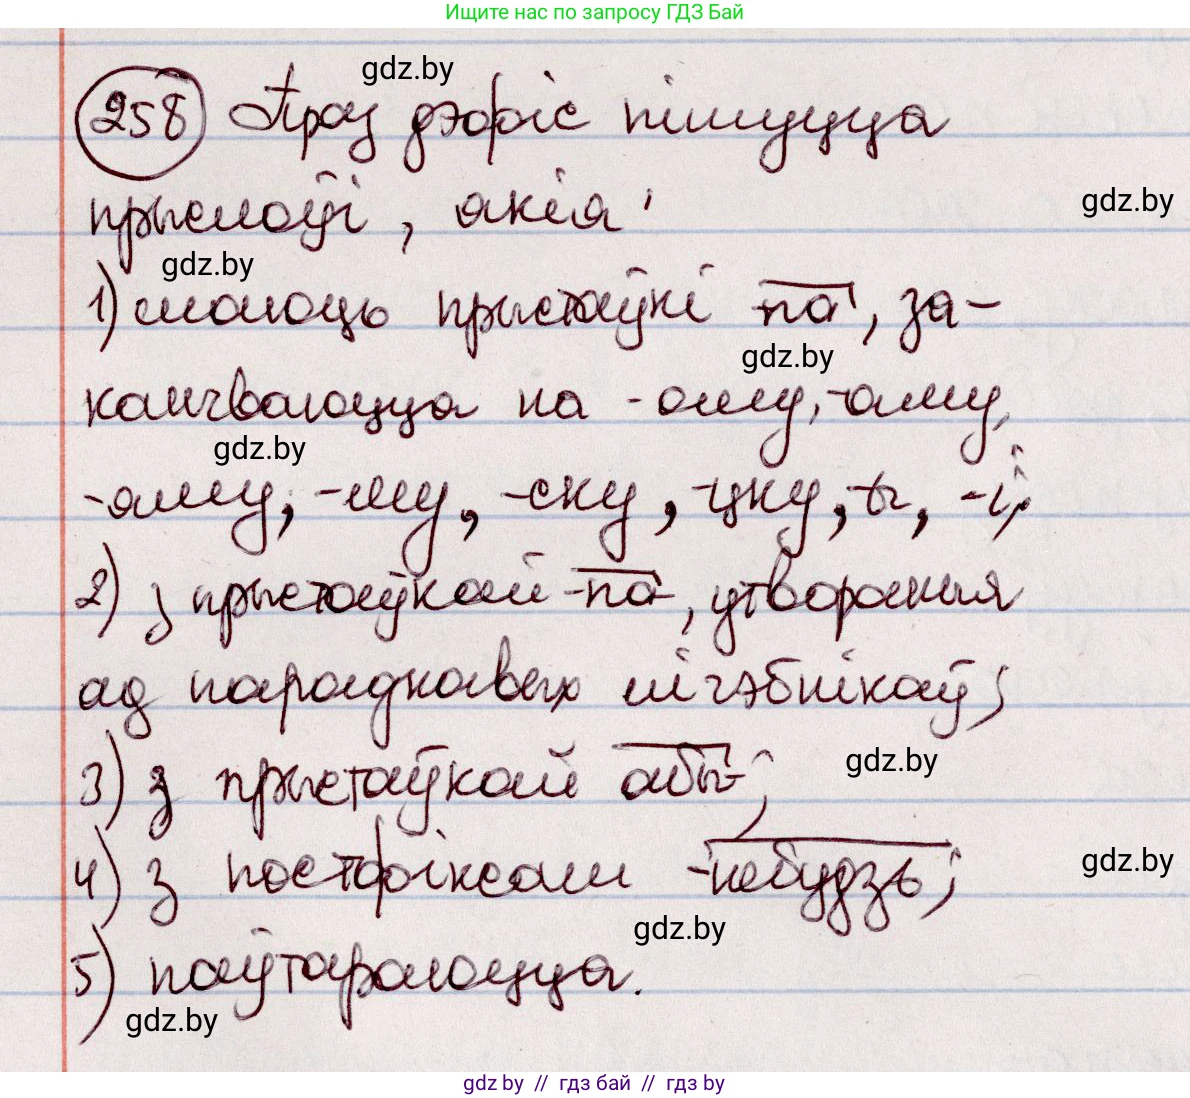 Ищите нас по запросу ГДЗ Бай
gdz.by
258 Праз дэфіс пішуцца
прыслоўі, якія:
gdz.by
gdz.by
1) маюць прыстаўкі па-, за-
gdz.by
канчваюцца на -ому, -аму,
gdz.by
-яму, -му, -ску, -цку, -ы, -і;
2) з прыстаўкай -па-, утвораныя
ад парадкавых лічэбнікаў;
3) з прыстаўкай абы-;
gdz.by
4) з постфіксам -небудзь;
gdz.by
gdz.by
5) паўтараюцца.
gdz.by
gdz by // гдз бай // гдз by